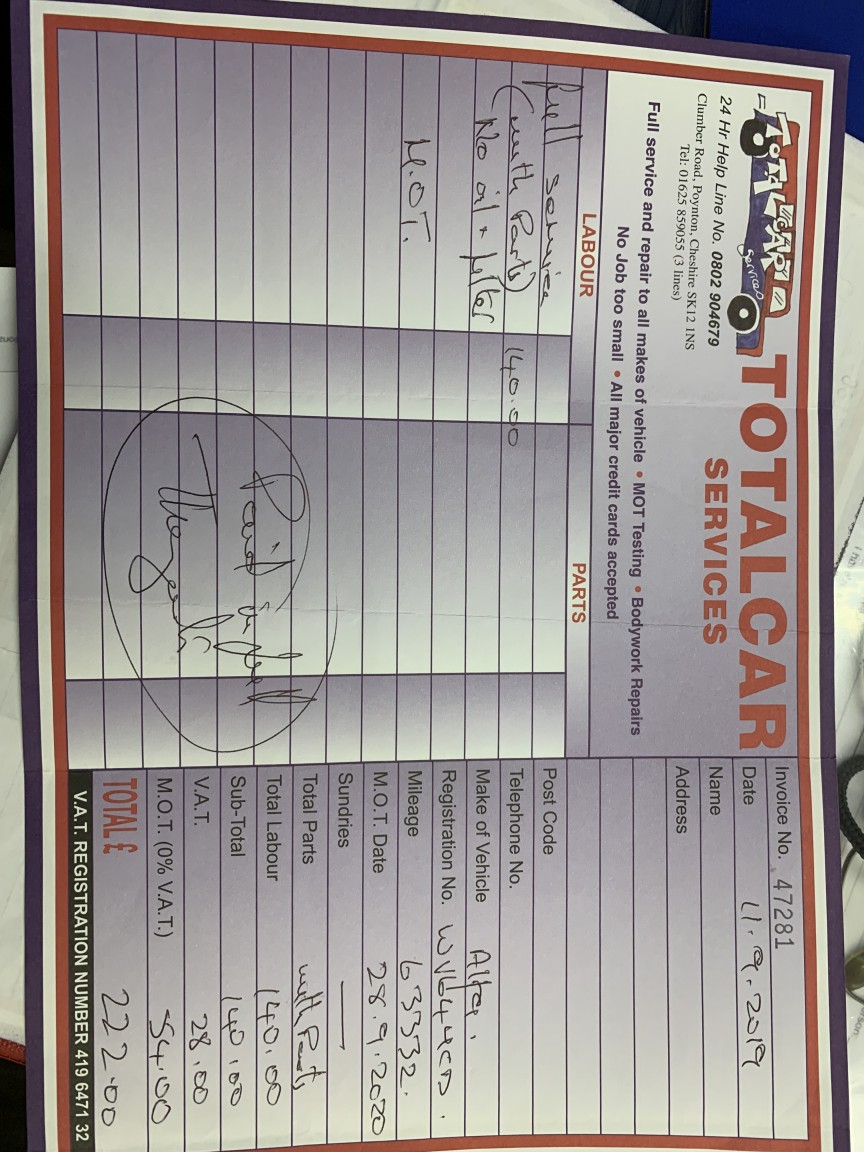 TOTALCAR
services
TOTALCAR
SERVICES
24 Hr Help Line No. 0802 904679
Clumber Road, Poynton, Cheshire SK12 1NS
Tel: 01625 859055 (3 lines)
Full service and repair to all makes of vehicle • MOT Testing • Bodywork Repairs
No Job too small • All major credit cards accepted
LABOUR PARTS
full service
(with Parts) 140.00
No oil + filter
M.O.T.
Paid in full
Invoice No. 47281
Date 11.9.2019
Name
Address
Post Code
Telephone No.
Make of Vehicle Alfa.
Registration No.
Mileage 63332.
M.O.T. Date 28.9.2020
Sundries —
Total Parts with Parts
Total Labour 140.00
Sub-Total 140.00
V.A.T. 28.00
M.O.T. (0% V.A.T.) 54.00
TOTAL £ 222.00
V.A.T. REGISTRATION NUMBER 419 6471 32